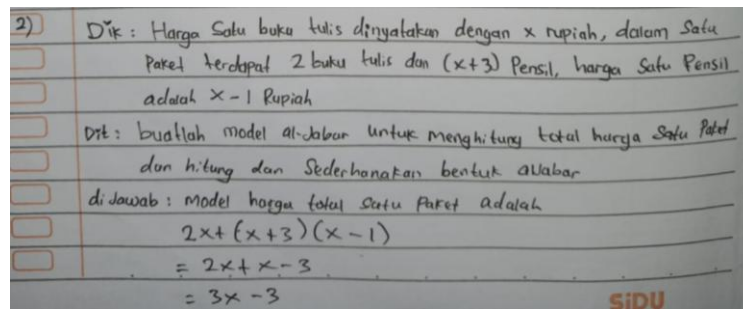 2) Dik : Harga Satu buku tulis dinyatakan dengan x rupiah, dalam Satu
Paket terdapat 2 buku tulis dan (x+3) Pensil, harga Satu Pensil
adalah x - 1 Rupiah
Dit : buatlah model al-Jabar untuk menghitung total harga Satu Paket
dan hitung dan Sederhanakan bentuk aljabar
di Jawab : Model harga total Satu Paket adalah
2x + (x+3)(x-1)
= 2x + x - 3
= 3x - 3
SiDU